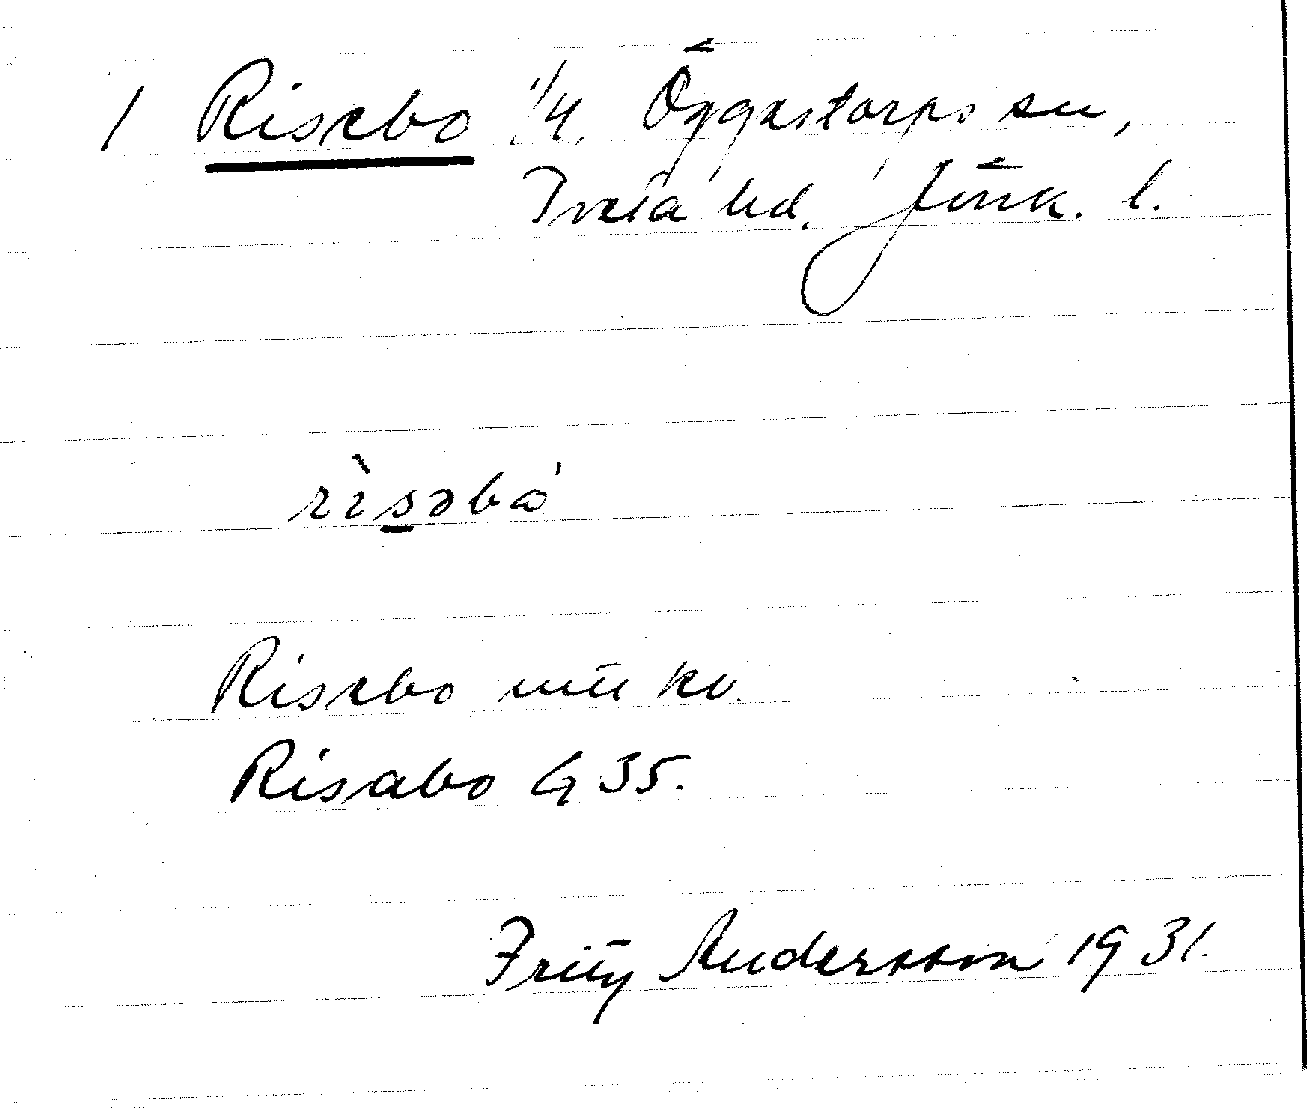 1 Risebo 1/4, Öggestorps sn,
Tveta hd. Jönk. l.
rìsəbó
Risebo mtl kv.
Risabo G 35.
Fritz Andersson 1931.